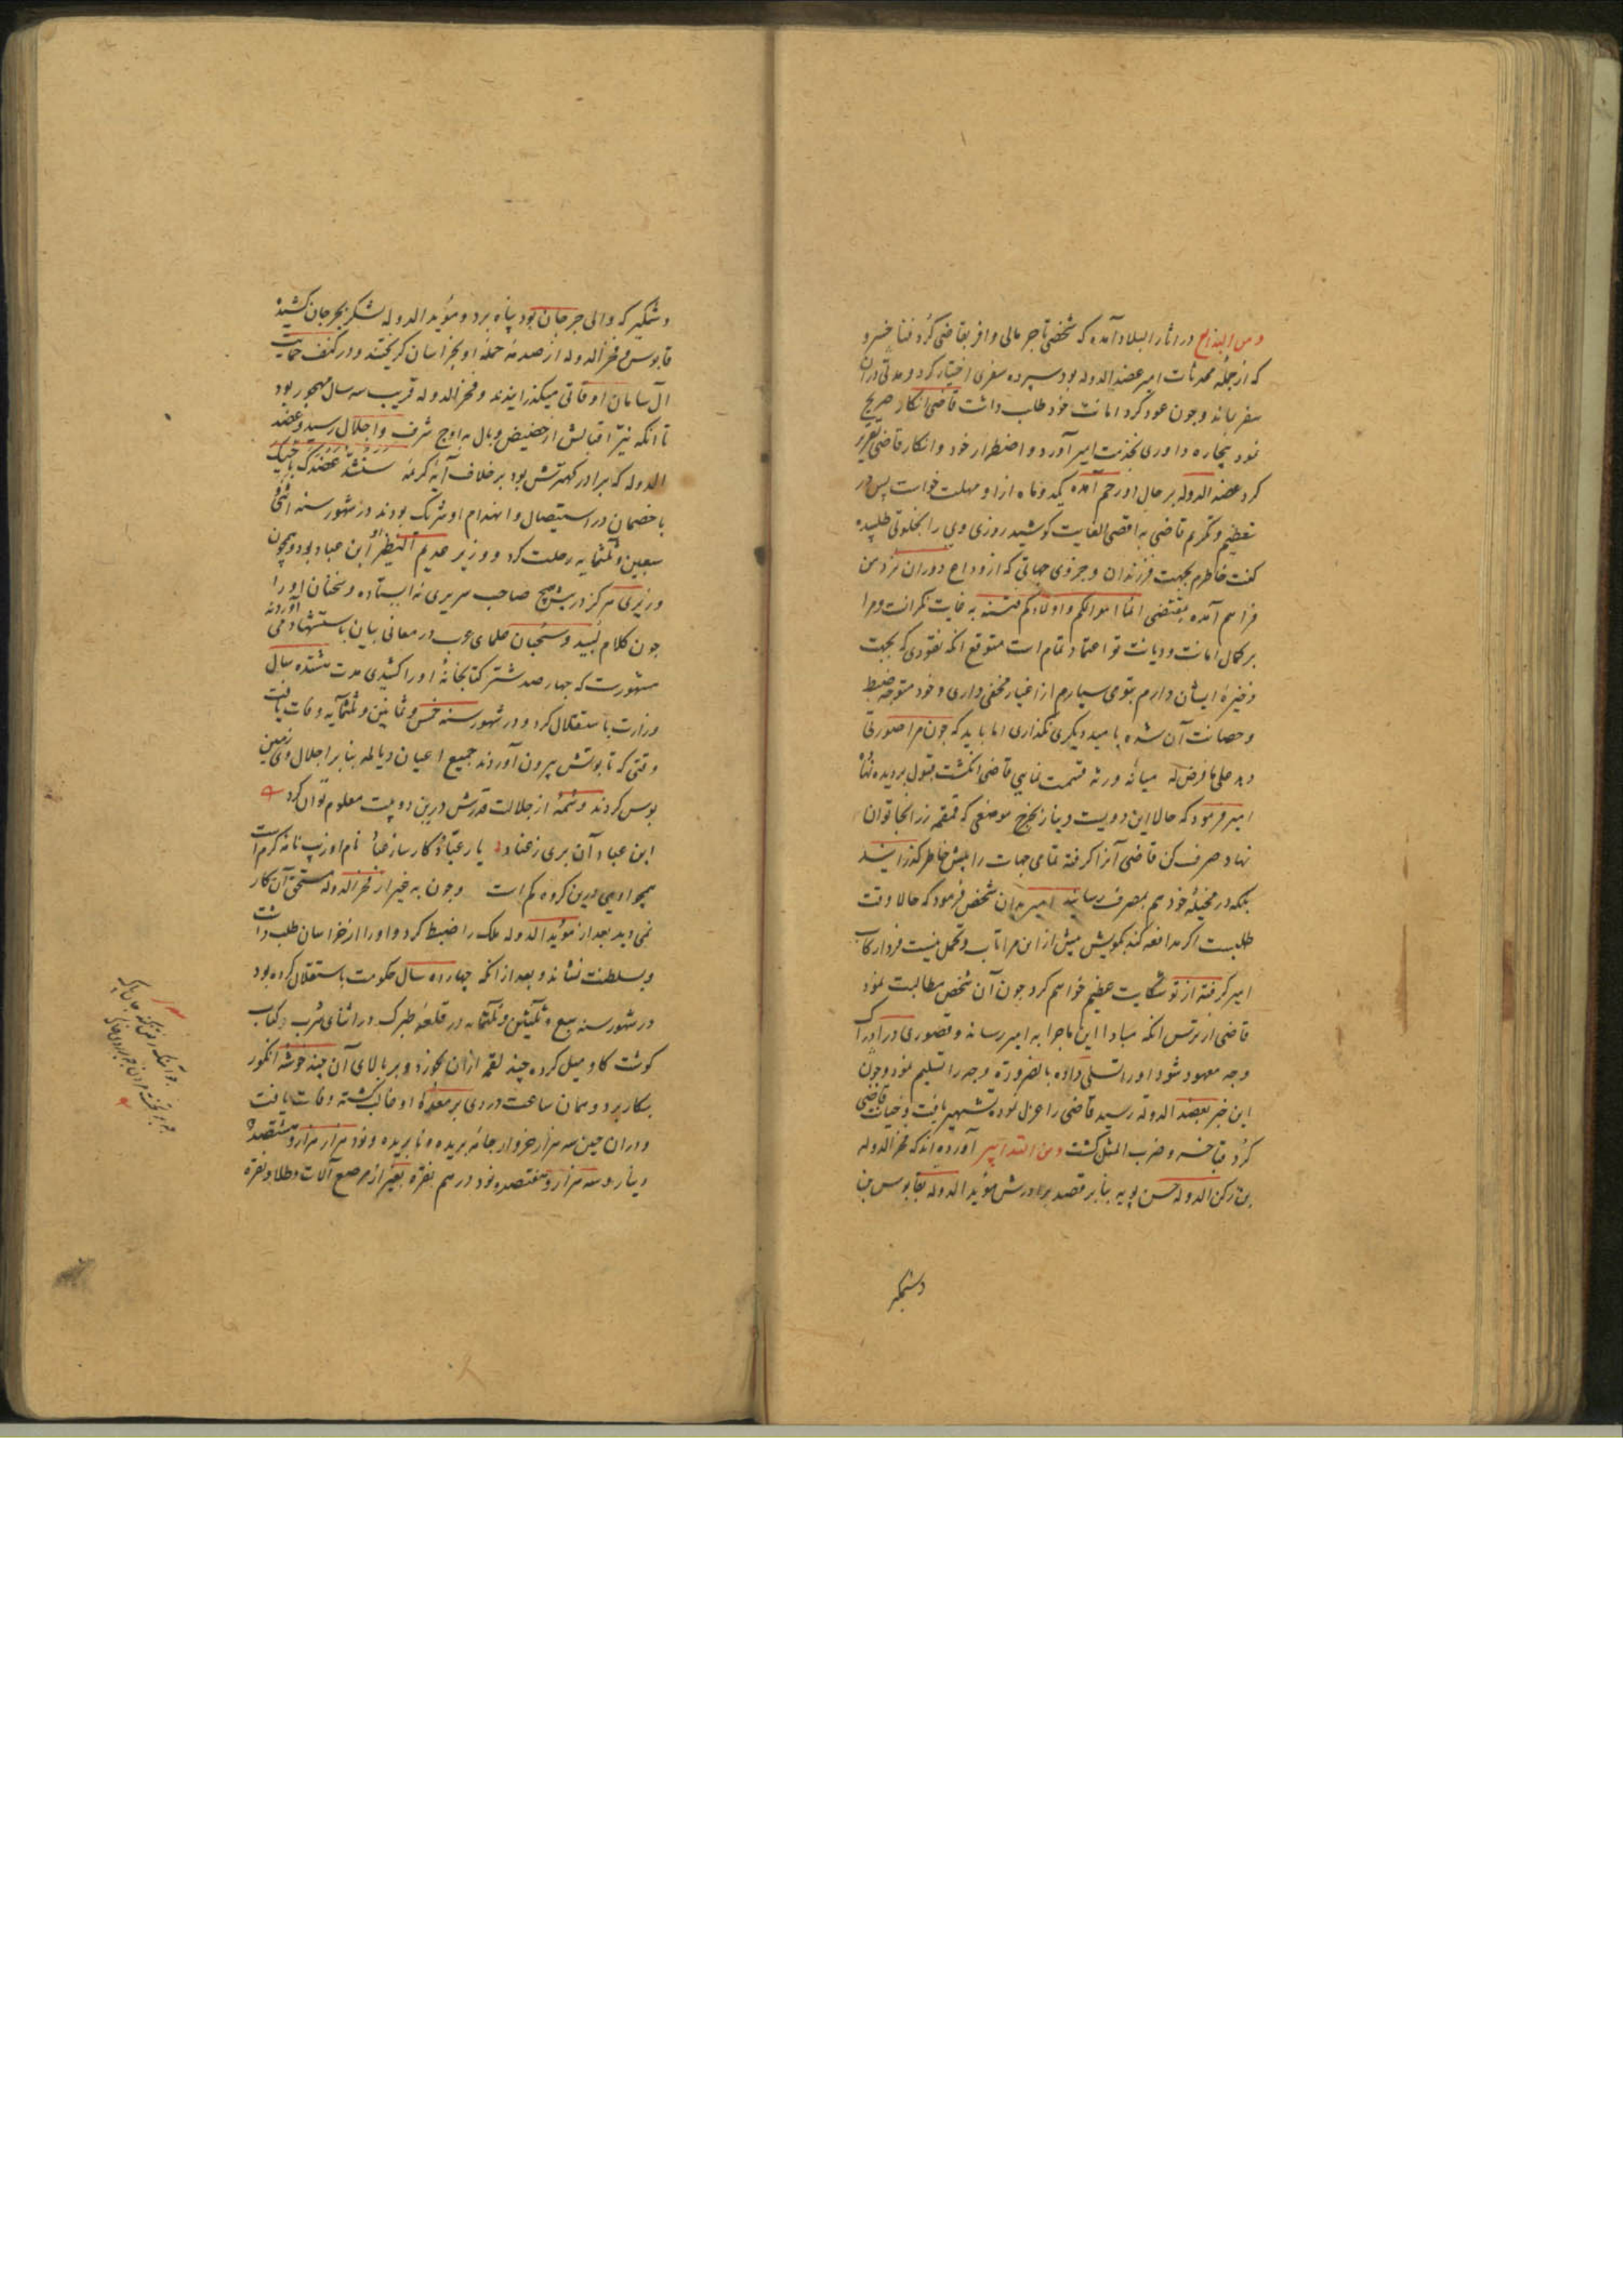 ومن البدائع در آثار البلاد آمده که شخصی تاجر مالی وافر بقاضی کُرد فنا خسرو
که از جمله محدثات امیر عضد الدوله بود سپرده سفری اختیار کرد و مدتی در آن
سفر بماند و چون عود کرد امانت خود طلب داشت قاضی انکار صریح
نمود بیچاره داوری بخدمت امیر آورد و اضطرار خود و انکار قاضی تقریر
کرد عضد الدوله بر حال او رحم آمده یکدو ماه ازو مهلت خواست پس در
تعظیم و تکریم قاضی به اقصی الغایت کوشید روزی وی را بخلوتی طلبیده
کفت خاطرم بجهت فرزندان و جزوی جهاتی که از وداع دوران نزد من
فراهم آمده بمقتضی انما اموالکم و اولادکم فتنه به غایت نکرانست و مرا
بر کمال امانت و دیانت تو اعتماد تمام است متوقع انکه نقودی که بجهت
ذخیره ایشان دارم بتو می سپارم از اغیار مخفی داری و خود متوجه ضبط
و حصانت آن شده بامید دیکری نکذاری اما باید که چون مرا صورتی
دهد علی ما فرض له میانه ورثه قسمت نمایی قاضی انکشت قبول بر دیده نهاد
امیر فرمود که حالا این دویست دینار بخرج موضعی که قمقمه زر انجا توان
نهاد صرف کن قاضی آنرا کرفته تمامی جهات را پیش خاطر کذرانید
بلکه در مخیله خود هم بمصرف رسانید امیر بدان شخص فرمود که حالا وقت
طلبست اکر مدافعه کند بکویش بیش از این مرا تاب و تحمل نیست فردا رکاب
امیر کرفته از تو شکایت عظیم خواهم کرد چون آن شخص مطالبت نمود
قاضی از ترس انکه مبادا این ماجرا به امیر رساند و قصوری در ادراک
وجه معهود شود او را تسلی داده بالضروره وجه را تسلیم نمود و چون
این خبر بعضد الدوله رسید قاضی را عزل نموده تشهیر یافت و خیانت قاضی
کُرد فنا خسرو ضرب المثل کشت ومن التدابیر آورده اند که فخر الدوله
بن رکن الدوله حسن بویه بنابر قصد برادرش مؤید الدوله بقابوس بن
وشمکیر
وشمکیر که والی جرجان بود پناه برد و مؤید الدوله لشکر بجرجان کشیده
قابوس و فخر الدوله از صدمه حمله او بخراسان کریختند و در کنف حمایت
آل سامان اوقاتی میکذرانیدند و فخر الدوله قریب سه سال مهجور بود
تا انکه نیّر اقبالش از حضیض وبال به اوج شرف و اجلال رسید و عضد
الدوله که برادر کهترش بود بر خلاف آیه کریمه سنشدّ عضدک باخیک
با خصمان در استیصال و انهدام او شریک بودند در شهور سنه اثنی
سبعین و ثلثمایه رحلت کرد و وزیر عدیم النظیر او ابن عباد بود و همچون
وزیری هرکز در پیش هیچ صاحب سریری نه ایستاده و سخنان او را
چون کلام لبید و سحبان علمای عرب در معانی بیان باستشهاد می آوردند
مشهورست که چهار صد شتر کتابخانهٔ او را کشیدی مدت هشتده سال
وزارت باستقلال کرد و در شهور سنه خمس و ثمانین و ثلثمایه وفات یافت
وقتی که تابوتش بیرون آوردند جمیع اعیان دیالمه بنابر اجلال وی زمین
بوس کردند و شمه از جلالت قدرش درین دو بیت معلوم توان کرد
ابن عباد آن بری ز عناد یار عباد و کارساز عباد نام او زیب نامه کرم است
همچو اویی درین کروه کم است و چون به غیر از فخر الدوله مستحق آن کار
نمی دید بعد از مؤید الدوله ملک را ضبط کرد و او را از خراسان طلب داشت
و بسلطنت نشاند و بعد از انکه چهارده سال حکومت باستقلال کرده بود
در شهور سنه سبع و ثمانین و ثلثمایه در قلعه طبرک در اثنای شرب و کباب
کوشت کاو میل کرده چند لقمه از آن بخورد و بر بالای آن چند خوشه انکور
بکار برد و همان ساعت دردی بر معدهٔ او غالب کشته وفات یافت
و در آن حین سه هزار خروار جامه بریده و نابریده و نود هزار هزار و ششصد
دینار و سه هزار و هفتصد و نود درهم بنقره بغیر از مرصع آلات و طلا و نقره